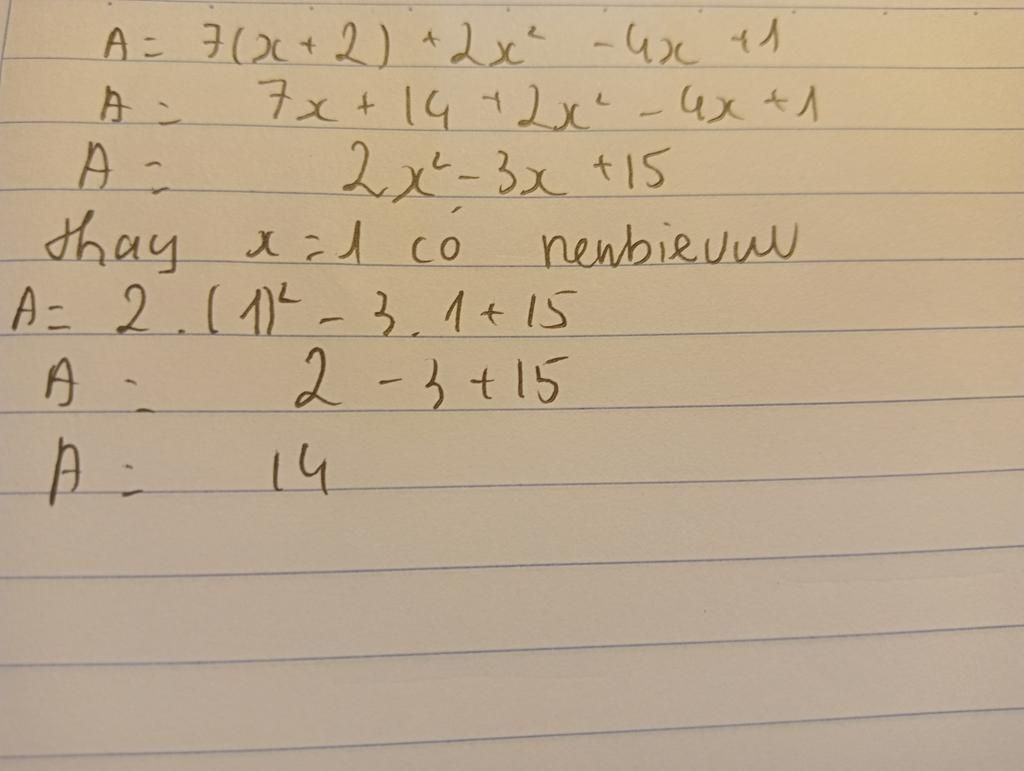 A = 7(x + 2) + 2x² - 4x + 1
A = 7x + 14 + 2x² - 4x + 1
A = 2x² - 3x + 15
thay x = 1 có
A = 2 . (1)² - 3 . 1 + 15
A = 2 - 3 + 15
A = 14